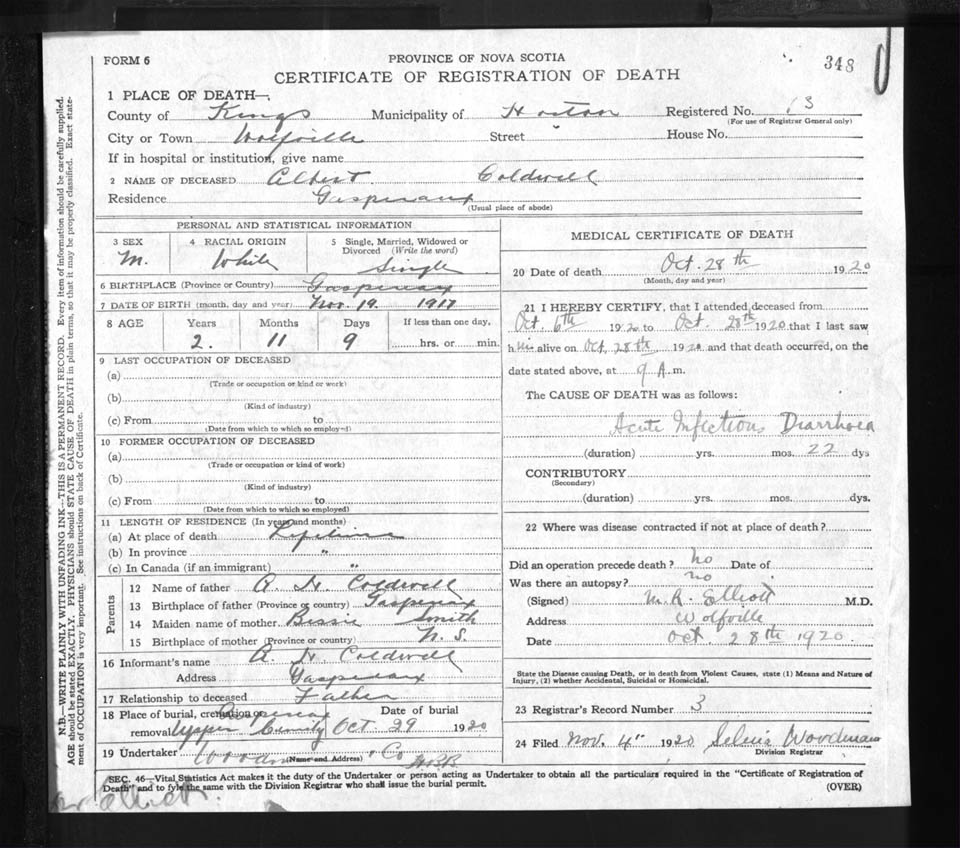 FORM 6
PROVINCE OF NOVA SCOTIA
348
CERTIFICATE OF REGISTRATION OF DEATH
1 PLACE OF DEATH—
County of Kings Municipality of Horton Registered No. 13
(For use of Registrar General only)
City or Town Wolfville Street House No.
If in hospital or institution, give name
2 NAME OF DECEASED Albert Coldwell
Residence Gaspereaux
(Usual place of abode)
PERSONAL AND STATISTICAL INFORMATION
3 SEX 4 RACIAL ORIGIN 5 Single, Married, Widowed or Divorced (Write the word)
M. White Single
6 BIRTHPLACE (Province or Country) Gaspereaux
7 DATE OF BIRTH (month, day and year) Nov. 19. 1917
8 AGE Years Months Days If less than one day,
2. 11 9 hrs. or min.
9 LAST OCCUPATION OF DECEASED
(a)
(Trade or occupation or kind or work)
(b)
(Kind of industry)
(c) From to
(Date from which to which so employed)
10 FORMER OCCUPATION OF DECEASED
(a)
(Trade or occupation or kind of work)
(b)
(Kind of industry)
(c) From to
(Date from which to which so employed)
11 LENGTH OF RESIDENCE (In years and months)
(a) At place of death Lifetime
(b) In province "
(c) In Canada (if an immigrant) "
Parents
12 Name of father A. H. Coldwell
13 Birthplace of father (Province or country) Gaspereaux
14 Maiden name of mother Bessie Smith
15 Birthplace of mother (Province or country) N. S.
16 Informant's name A. H. Coldwell
Address Gaspereaux
17 Relationship to deceased Father
18 Place of burial, cremation or removal Date of burial
Gaspereaux
Upper Oct 29 1920
19 Undertaker Co
(Name and Address)
MEDICAL CERTIFICATE OF DEATH
20 Date of death Oct. 28th 1920
(Month, day and year)
21 I HEREBY CERTIFY, that I attended deceased from
Oct. 6th 1920 to Oct. 28th 1920 that I last saw
him alive on Oct. 28th 1920 and that death occurred, on the
date stated above, at 9 A.m.
The CAUSE OF DEATH was as follows:
Acute Infectious Diarrhoea
(duration) yrs. mos. 22 dys
CONTRIBUTORY
(Secondary)
(duration) yrs. mos. dys.
22 Where was disease contracted if not at place of death?
Did an operation precede death? no Date of
Was there an autopsy? no
(Signed) M. R. Elliott M.D.
Address Wolfville
Date Oct 28th 1920
State the Disease causing Death, or in death from Violent Causes, state (1) Means and Nature of
Injury, (2) whether Accidental, Suicidal or Homicidal.
23 Registrar's Record Number 3
24 Filed Nov. 4th 1920 Woodman
Division Registrar
SEC. 46—Vital Statistics Act makes it the duty of the Undertaker or person acting as Undertaker to obtain all the particulars required in the "Certificate of Registration of
Death" and to fyle the same with the Division Registrar who shall issue the burial permit.
(OVER)
N.B.—WRITE PLAINLY WITH UNFADING INK—THIS IS A PERMANENT RECORD. Every item of information should be carefully supplied.
AGE should be stated EXACTLY. PHYSICIANS should STATE CAUSE OF DEATH in plain terms, so that it may be properly classified. Exact statement of OCCUPATION is very important. See instructions on back of Certificate.